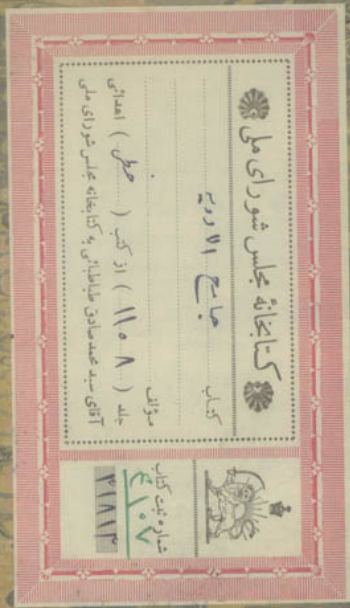 کتابخانهٔ مجلس شورای ملی
کتاب جامع الادویه
مؤلف
جلد ( ۱۱۰۸ ) از کتب ( خطی ) اهدائی
آقای سید محمد صادق طباطبائی به کتابخانه مجلس شورای ملی
شماره ثبت کتاب
۴۱۰۷
۳۱۸۱۳